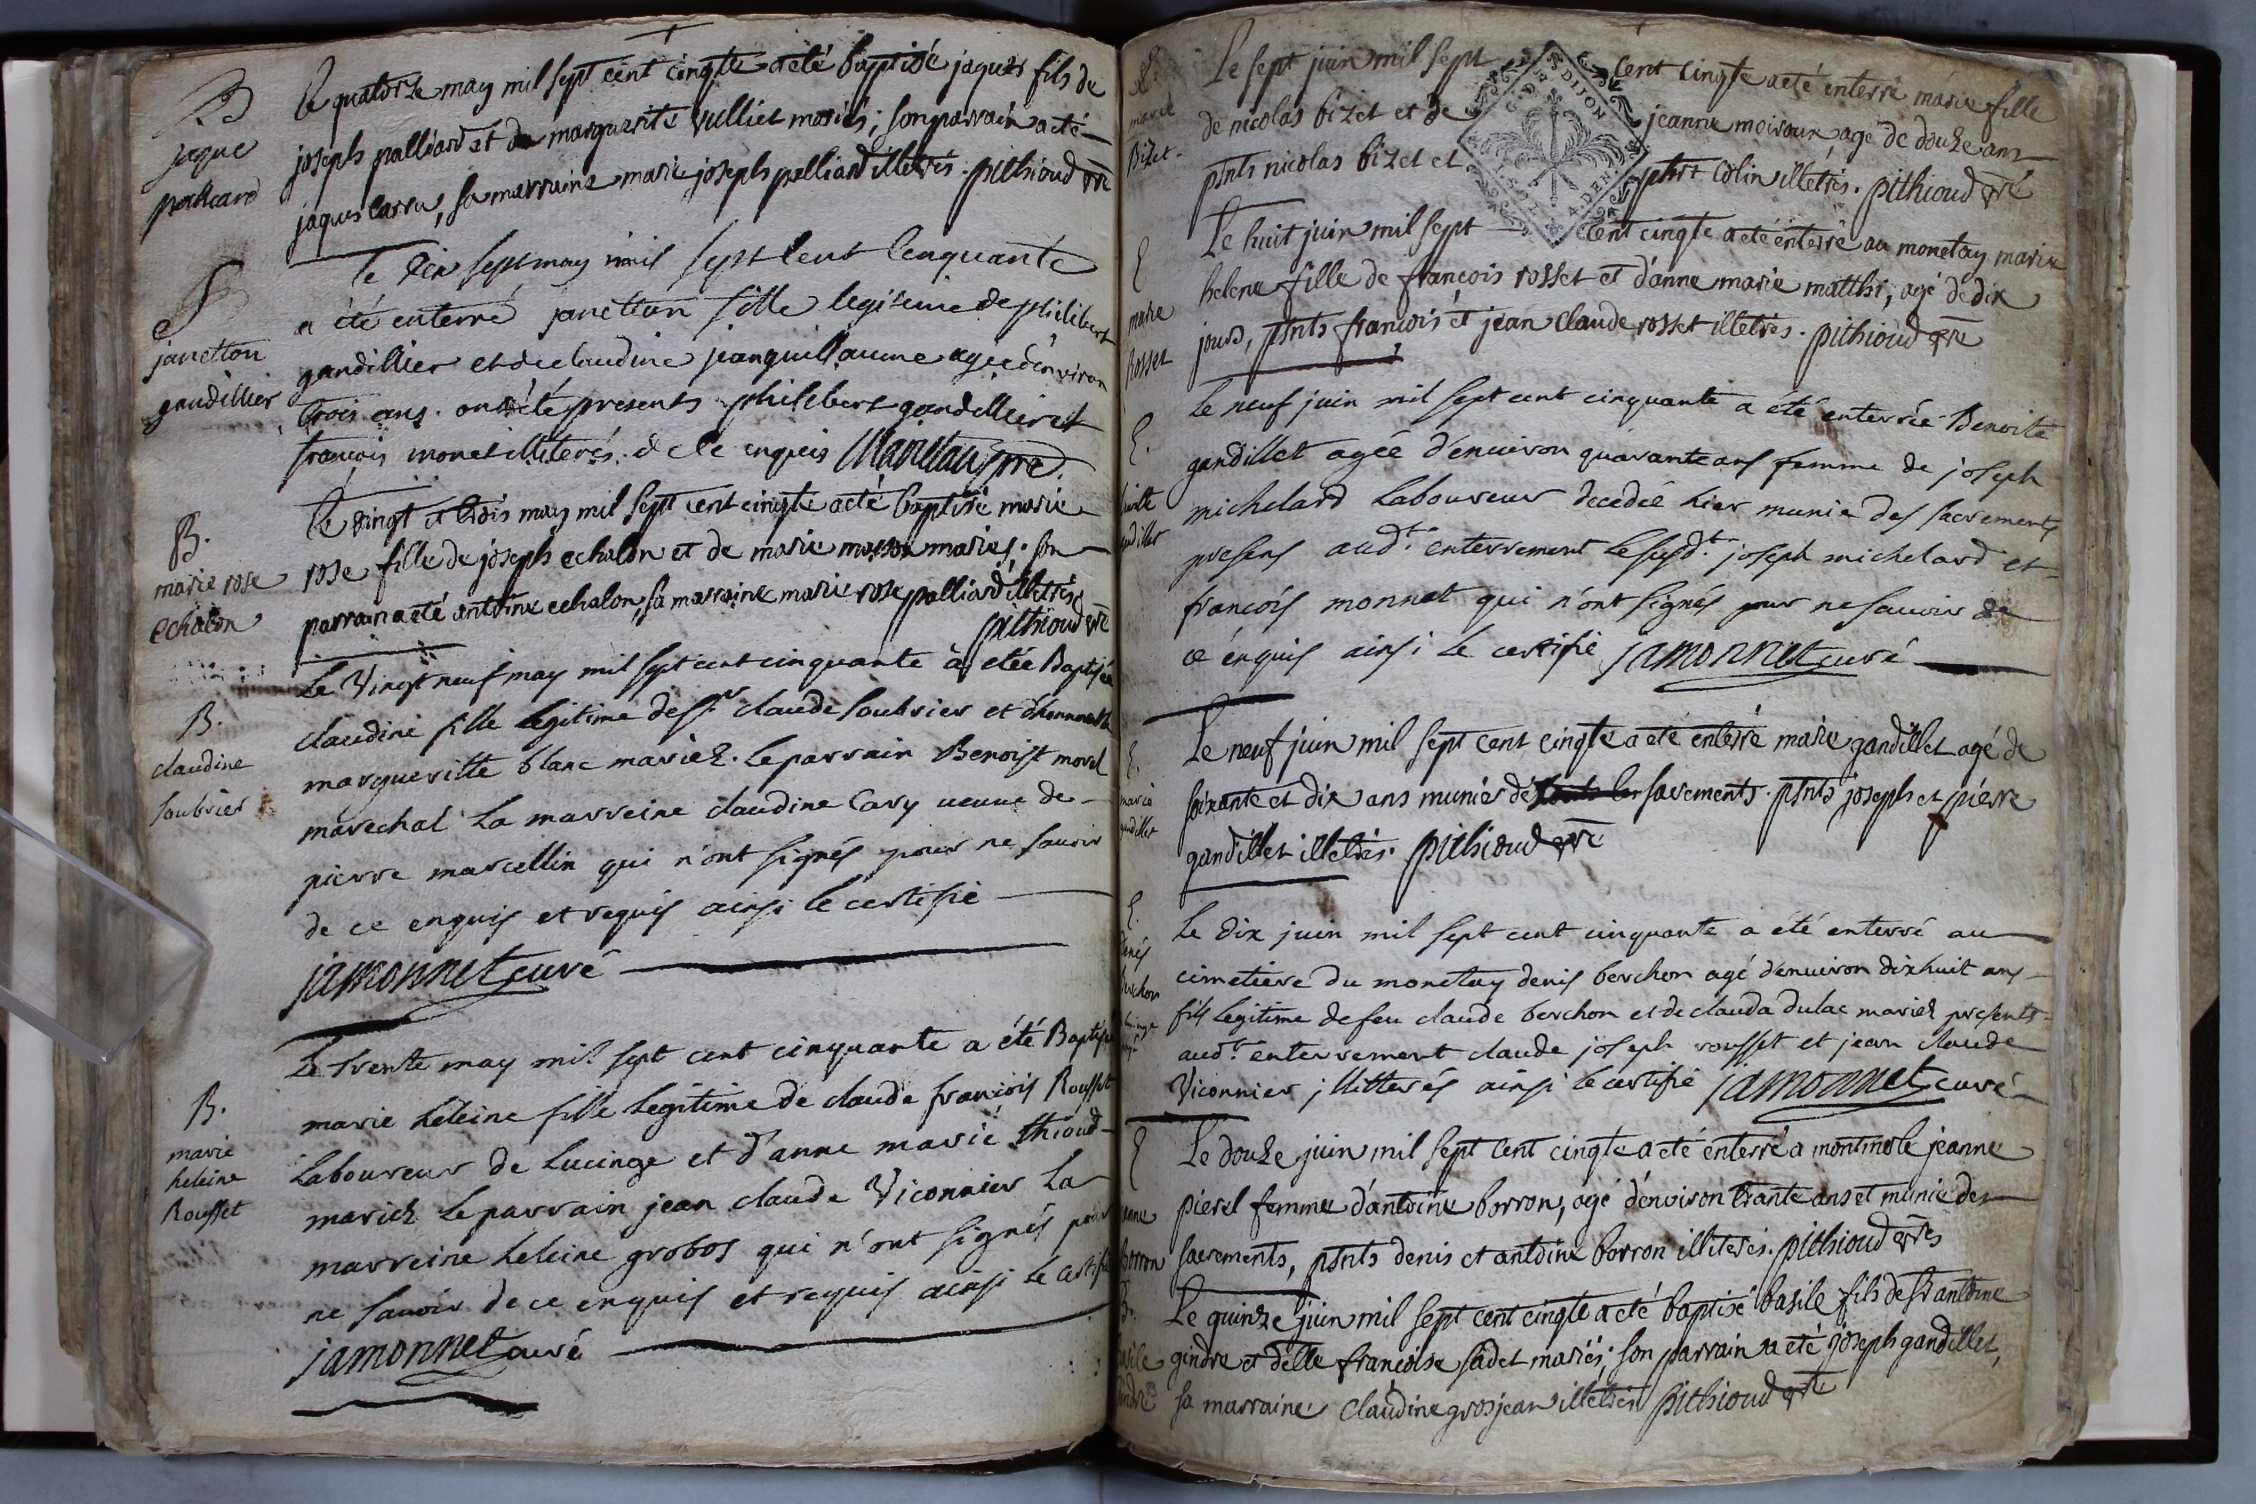 B
jaque
palliard
Le quatorze may mil sept cent cinqte a eté baptisé jaques fils de
joseph palliard et de marguerite vulliet mariés; son parrain a eté
jaques carru, sa marraine marie joseph palliard illetrés. pithioud ptre
S
janetton
gandillier
Le dix sept may mil sept cent cenquante
a été enterré janetton fille legiteime de philibert
gandillier et de claudine jeanguillaume agée d'environ
trois ans. ont été presents philibert gandillier et
francois monet illiterés. de ce enquis
B.
marie rose
echalon
Le vingt et trois may mil sept cent cinqte a eté baptisé marie
rose fille de joseph echalon et de marie masson mariés. son
parrain a eté antoine echalon, sa marraine marie rose palliard illetrés
pithioud ptre
B.
claudine
soubrier
Le Vingt neuf may mil sept cent cinquante a etée Baptisée
claudine fille legitime de sr claude soubrier et d'honneste
margueritte blanc mariez. le parrain Benoist morel
marechal la marreine claudine Cary veuve de
pierre marcellin qui n'ont signés pour ne savoir
de ce enquis et requis ainsi le certifie
jamonnet curé
B.
marie
heleine
Rousset
Le trente may mil sept cent cinquante a été Baptisée
marie heleine fille legitime de claude francois Rousset
laboureur de Lucinge et d'anne marie thioud
mariez le parrain jean claude Viconnier la
marreine heleine grobos qui n'ont signés pour
ne savoir de ce enquis et requis ainsi le certifie
jamonnet curé
E.
marie
Bizet
Le sept juin mil sept cent cinqte a eté enterré marie fille
de nicolas bizet et de jeanne moiroux, agé de douze ans
ptnts nicolas bizet et phrt colin illétrés. pithioud ptre
G. D. DIJON
4. DEN.
E
marie
Rosset
Le huit juin mil sept cent cinqte a eté enterré au monetay marie
helene fille de francois rosset et d'anne marie matthi, agé de dix
jours, ptnts francois et jean claude rosset illetrés. pithioud ptre
E.
gandillet
Le neuf juin mil sept cent cinquante a été enterrée Benoite
gandillet agée d'enuiron quarante ans femme de joseph
michelard laboureur decedée hier munie des sacrements
presens audt enterrement le susdt joseph michelard et
francois monnet qui n'ont signés pour ne sauoir de
ce enquis ainsi le certifie jamonnet curé
E.
marie
gandillet
Le neuf juin mil sept cent cinqte a eté enterré marie gandillet agé de
soixante et dix ans muniés de sacrements. ptnts joseph et pierre
gandillet illetrés. pithioud ptre
E.
denis
berchon
Le dix juin mil sept cent cinquante a été enterré au
cimetiere du monetay denis berchon agé d'enuiron dix huit ans
fils legitime de feu claude berchon et de clauda dulac mariez presents
audt enterrement claude joseph rousset et jean claude
Viconnier illitterés ainsi le certifie jamonnet curé
E
borron
Le douze juin mil sept cent cinqte a eté enterré a montmole jeanne
pierel femme d'antoine borron, agé d'environ trante ans et munie des
sacrements, ptnts denis et antoine borron illiterés. pithioud ptre
B.
basile
gindre
Le quinze juin mil sept cent cinqte a eté baptisé basile fils de sr antoine
gindre et delle francoise sadet mariés; son parrain a eté joseph gandillet,
sa marraine claudine grosjean illetrés pithioud ptre